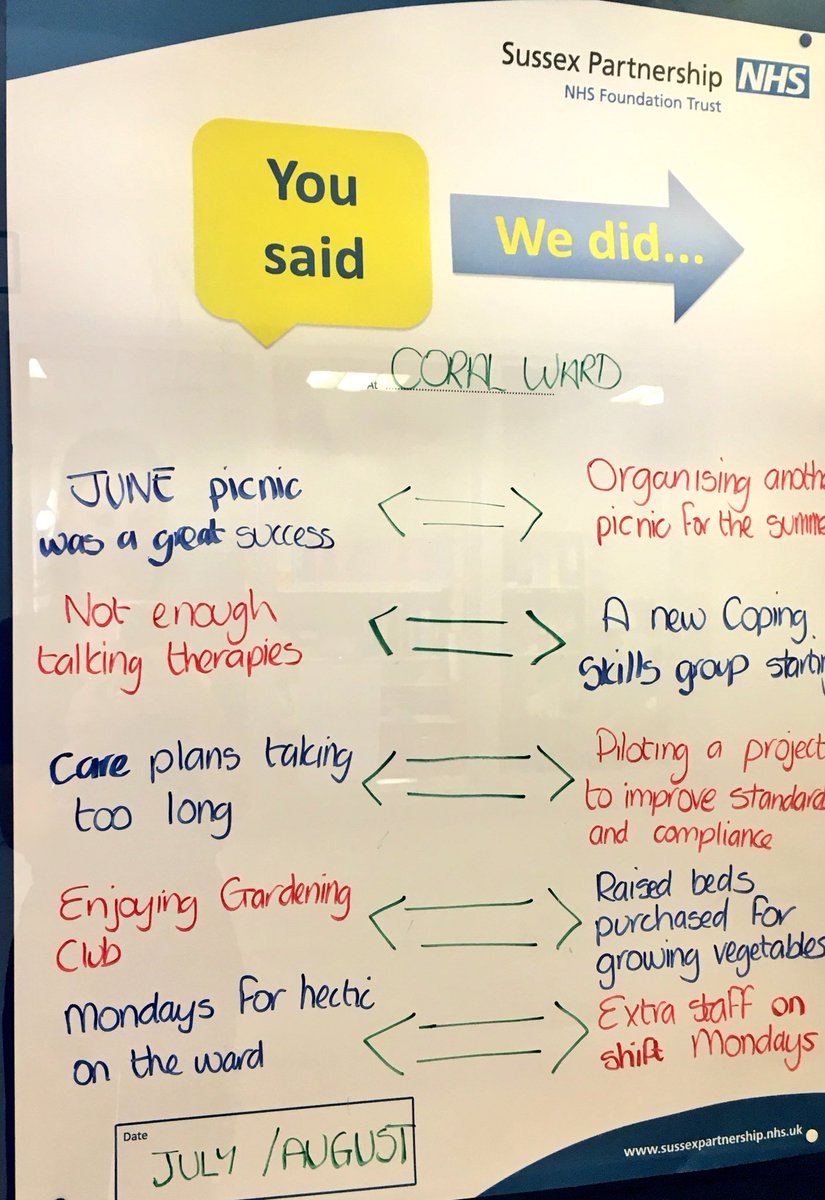 Sussex Partnership NHS
NHS Foundation Trust
You
said
We did...
At CORAL WARD
JUNE picnic
was a great success
Organising anoth
picnic for the summe
Not enough
talking therapies
A new Coping
skills group startin
Care plans taking
too long
Piloting a project
to improve standard
and compliance
Enjoying Gardening
Club
Raised beds
purchased for
growing vegetables
Mondays for hectic
on the ward
Extra staff on
shift Mondays
Date
JULY /AUGUST
www.sussexpartnership.nhs.uk